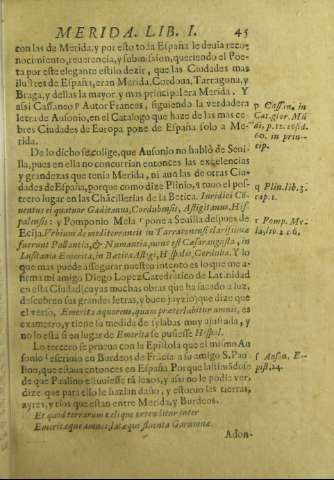 MERIDA. LIB. I. 45
con las de Merida, y por esto toda España le deuia reco-
nocimiento, reuerencia, y submission, queriendo el Poe-
ta por este elegante estilo dezir, que las Ciudades mas
ilustres de España, eran Merida, Cordoua, Tarragona, y
Braga, y dellas la mayor, y mas principal era Merida. Y
assi Cassaneo p Autor Frances, siguiendo la verdadera
letra de Ausonio, en el Catalogo que haze de las mas ce
bres Ciudades de Europa pone de España solo a Me-
rida.
p Cassan. in
Cat. glor. Mũ
di, p. 12. cõsid.
60. in prin-
cip.
De lo dicho se colige, que Ausonio no hablò de Seui-
lla, pues en ella no concurrian entonces las excelencias
y grandezas que tenia Merida, ni aun las de otras Ciu-
dades de España, porque como dize Plinio, q tuuo el pos-
trero lugar en las Chãcillerias de la Betica. Iuridici Co
nuentus ei quatuor Gaditanus, Cordubensis, Astigitanus, His-
palensis: y Pomponio Mela r pone a Seuilla despues de
Ecija. Vrbium de mediterraneis in Tarraconensi clarissimæ
fuerunt Pallantia, & Numantia, nunc est Cæsaraugusta, in
Lusitania Emerita, in Betica Astigi, Hispalis, Corduba. Y lo
que mas puede assegurar nuestro intento es lo que me a-
firma mi amigo Diego Lopez Catedratico de Latinidad
en esta Ciudad (cuyas muchas obras que ha sacado a luz,
descubren sus grandes letras, y buen juyzio) que dize que
el verso, Emerita æquoreus, quam præterlabitur amnis, es
exametro, y tiene la medida de sylabas muy ajustada, y
no lo està si en lugar de Emerita se pusiesse Hispal.
q Plin. lib. 3.
cap. 1.
r Pomp. Me-
la, lib. 2. c. 6.
Lo tercero se prueua con la Epistola que el mismo Au
sonio s escriuio en Burdeos de Frãcia a su amigo S. Pau
lino, que estaua entonces en España Porque lastimãdose
de que Paulino estuuiesse tã lexos, y assi no le podia ver,
dize que para ello le hazian daño, y estoruo las tierras,
ayres, y rios que estan entre Merida, y Burdeos.
s Auson. E-
pist. 24.
Et quod terrarum cœlique
Emeritæque amnis, latæque fluenta Garumnæ.
Adon-